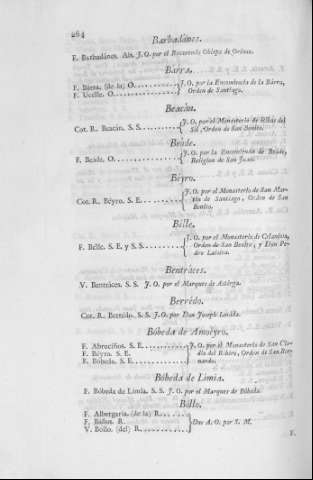 264
Barbadánes.
F. Barbadánes. Ab. J. O. por el Reverendo Obispo de Orense.
Barra.
F. Barra. (de la) O.
F. Ucelle. O.
J. O. por la Encomienda de la Bárra,
Orden de Santiago.
Beacán.
Cot. R. Beacán. S. S.
J. O. por el Monasterio de Ribas del
Sil, Orden de San Benito.
Beáde.
F. Beáde. O.
J. O. por la Encomienda de Beáde,
Religion de San Juan.
Béyro.
Cot. R. Béyro. S. E.
J. O. por el Monasterio de San Mar-
tin de Santiago, Orden de San
Benito.
Bélle.
F. Bélle. S. E. y S. S.
J. O. por el Monasterio de Celanóva,
Orden de San Benito, y Don Pe-
dro
Bentráces.
V. Bentráces. S. S. J. O. por el Marques de Astórga.
Berrédo.
Cot. R. Berrédo. S. S. J. O. por Don Joseph
Bóbeda de Amoéyro.
F. Abrociños. S. E.
F. Béyro. S. E.
F. Bóbeda. S. E.
J. O. por el Monasterio de San Clo-
dio del Ribéro, Orden de San Ber-
nardo.
Bóbeda de Limia.
F. Bóbeda de Limia. S. S. J. O. por el Marques de Bóbeda.
Bóllo.
F. Albergaría. (de la) R.
F. Báños. R.
V. Bollo. (del) R.
Dos A. O. por S. M.
F.